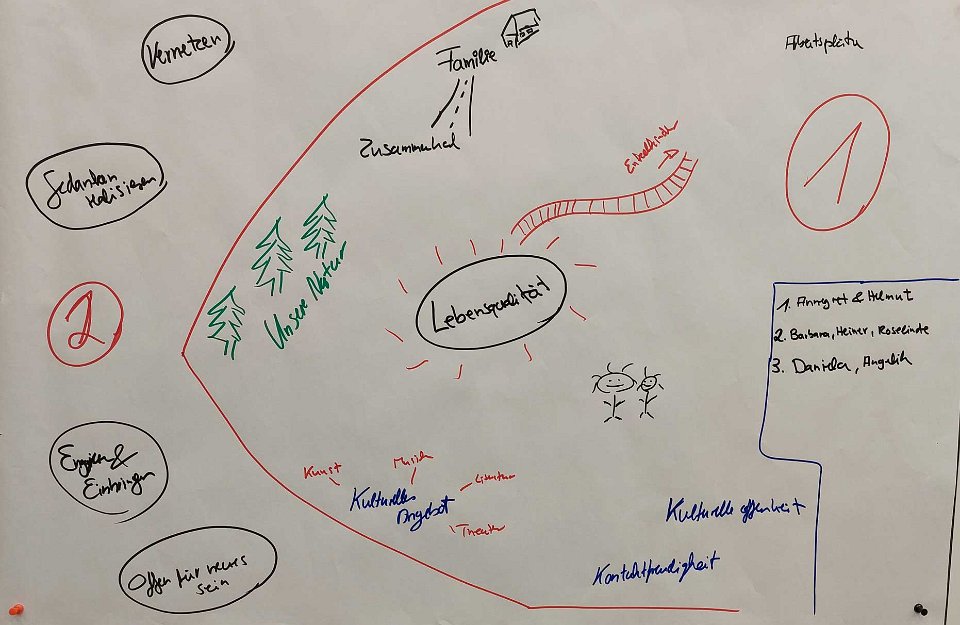 Vernetzen
Familie
Zusammenhal
Arbeitsplätze
1
Gedanken
realisieren
Enkelkinder
Unsere Natur
Lebensqualität
2
1. Annegret & Helmut
2. Barbara, Heiner, Roselinde
3. Daniela, Angelik
Einbringen
Kunst
Musik
Literatur
Kulturelles
Angebot
Theater
Kulturelle offenheit
Kontaktfreudigkeit
Offen für neues
sein